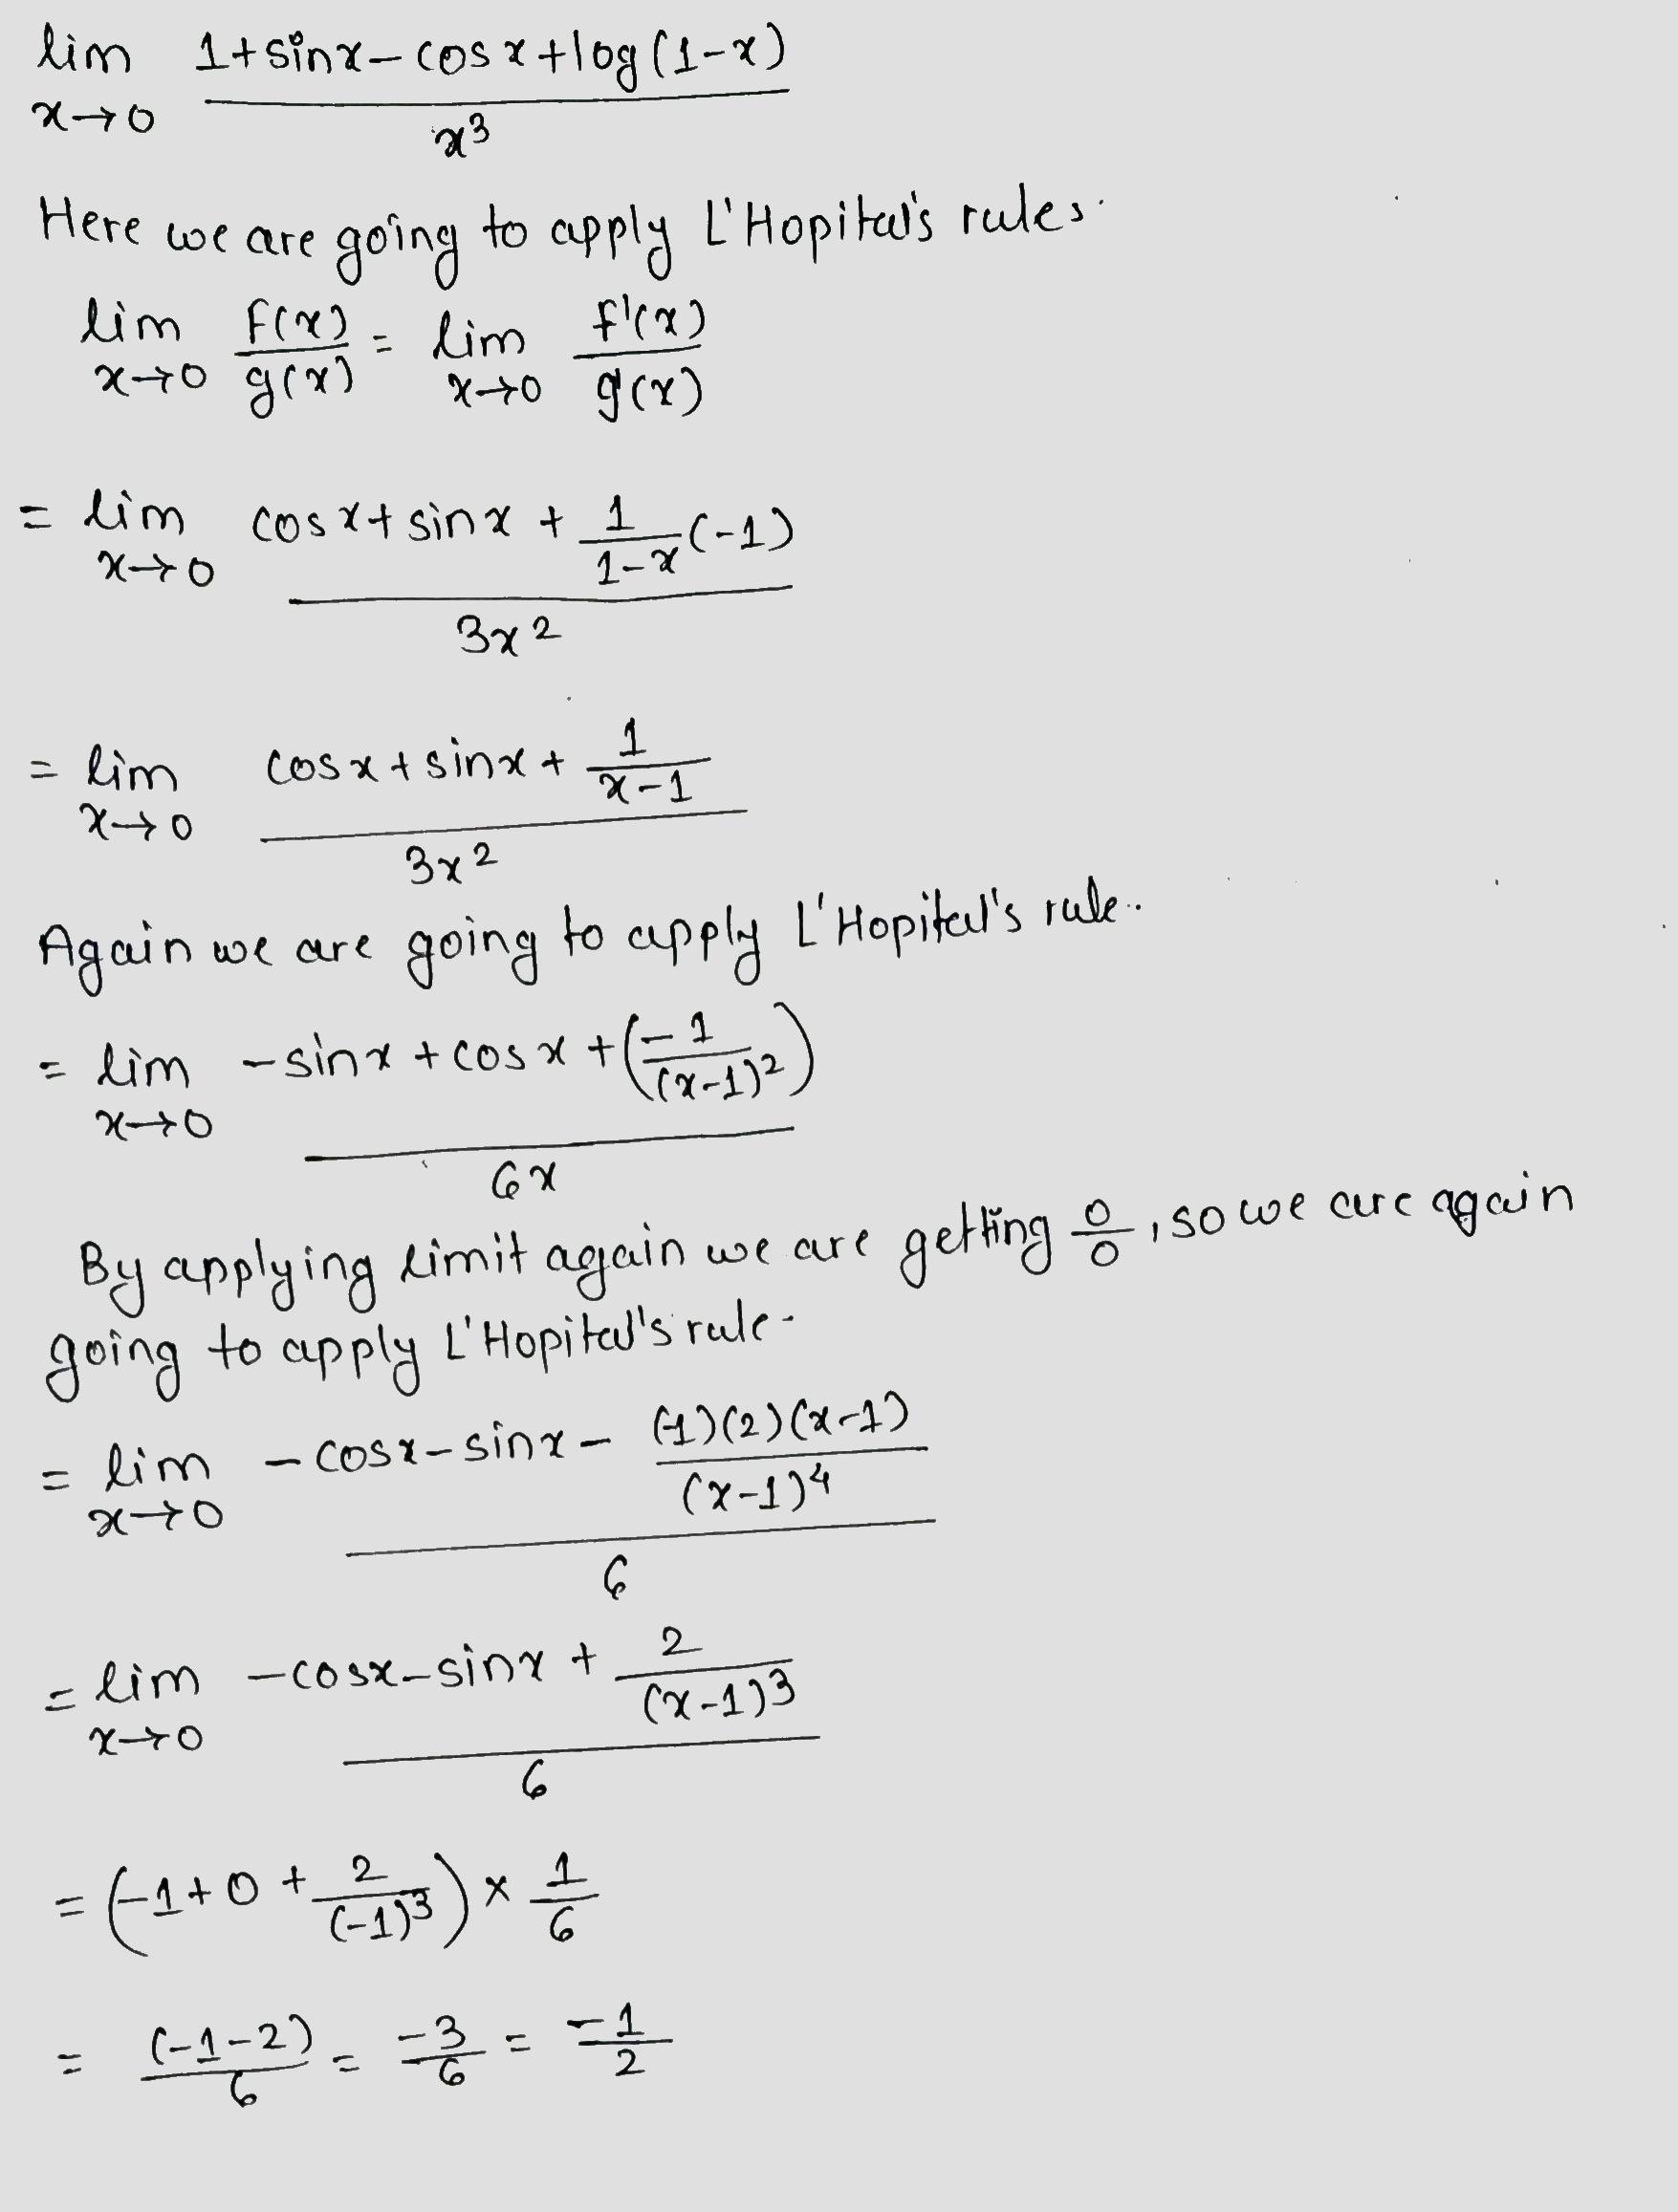 lim 1+sinx-cosx+log(1-x)
x→0 x³
Here we are going to apply L'Hopital's rules.
lim f(x) = lim f'(x)
x→0 g(x) x→0 g'(x)
= lim cosx+sinx + 1/(1-x) (-1)
x→0 3x²
= lim cosx+sinx+ 1/(x-1)
x→0 3x²
Again we are going to apply L'Hopital's rule.
= lim -sinx+cosx+(-1/(x-1)²)
x→0 6x
By applying limit again we are getting 0/0, so we are again
going to apply L'Hopital's rule.
= lim -cosx-sinx- (-1)(2)(x-1)/(x-1)⁴
x→0 6
= lim -cosx-sinx+ 2/(x-1)³
x→0 6
= (-1+0+ 2/(-1)³) × 1/6
= (-1-2)/6 = -3/6 = -1/2